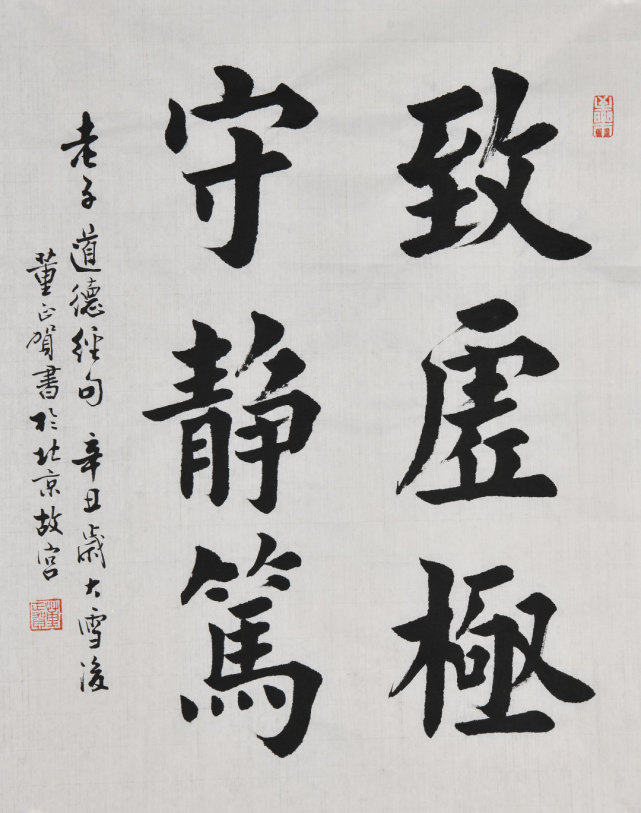 致虛極
守静篤
老子道德經句 辛丑歲大雪後
董正賀書於北京故宫